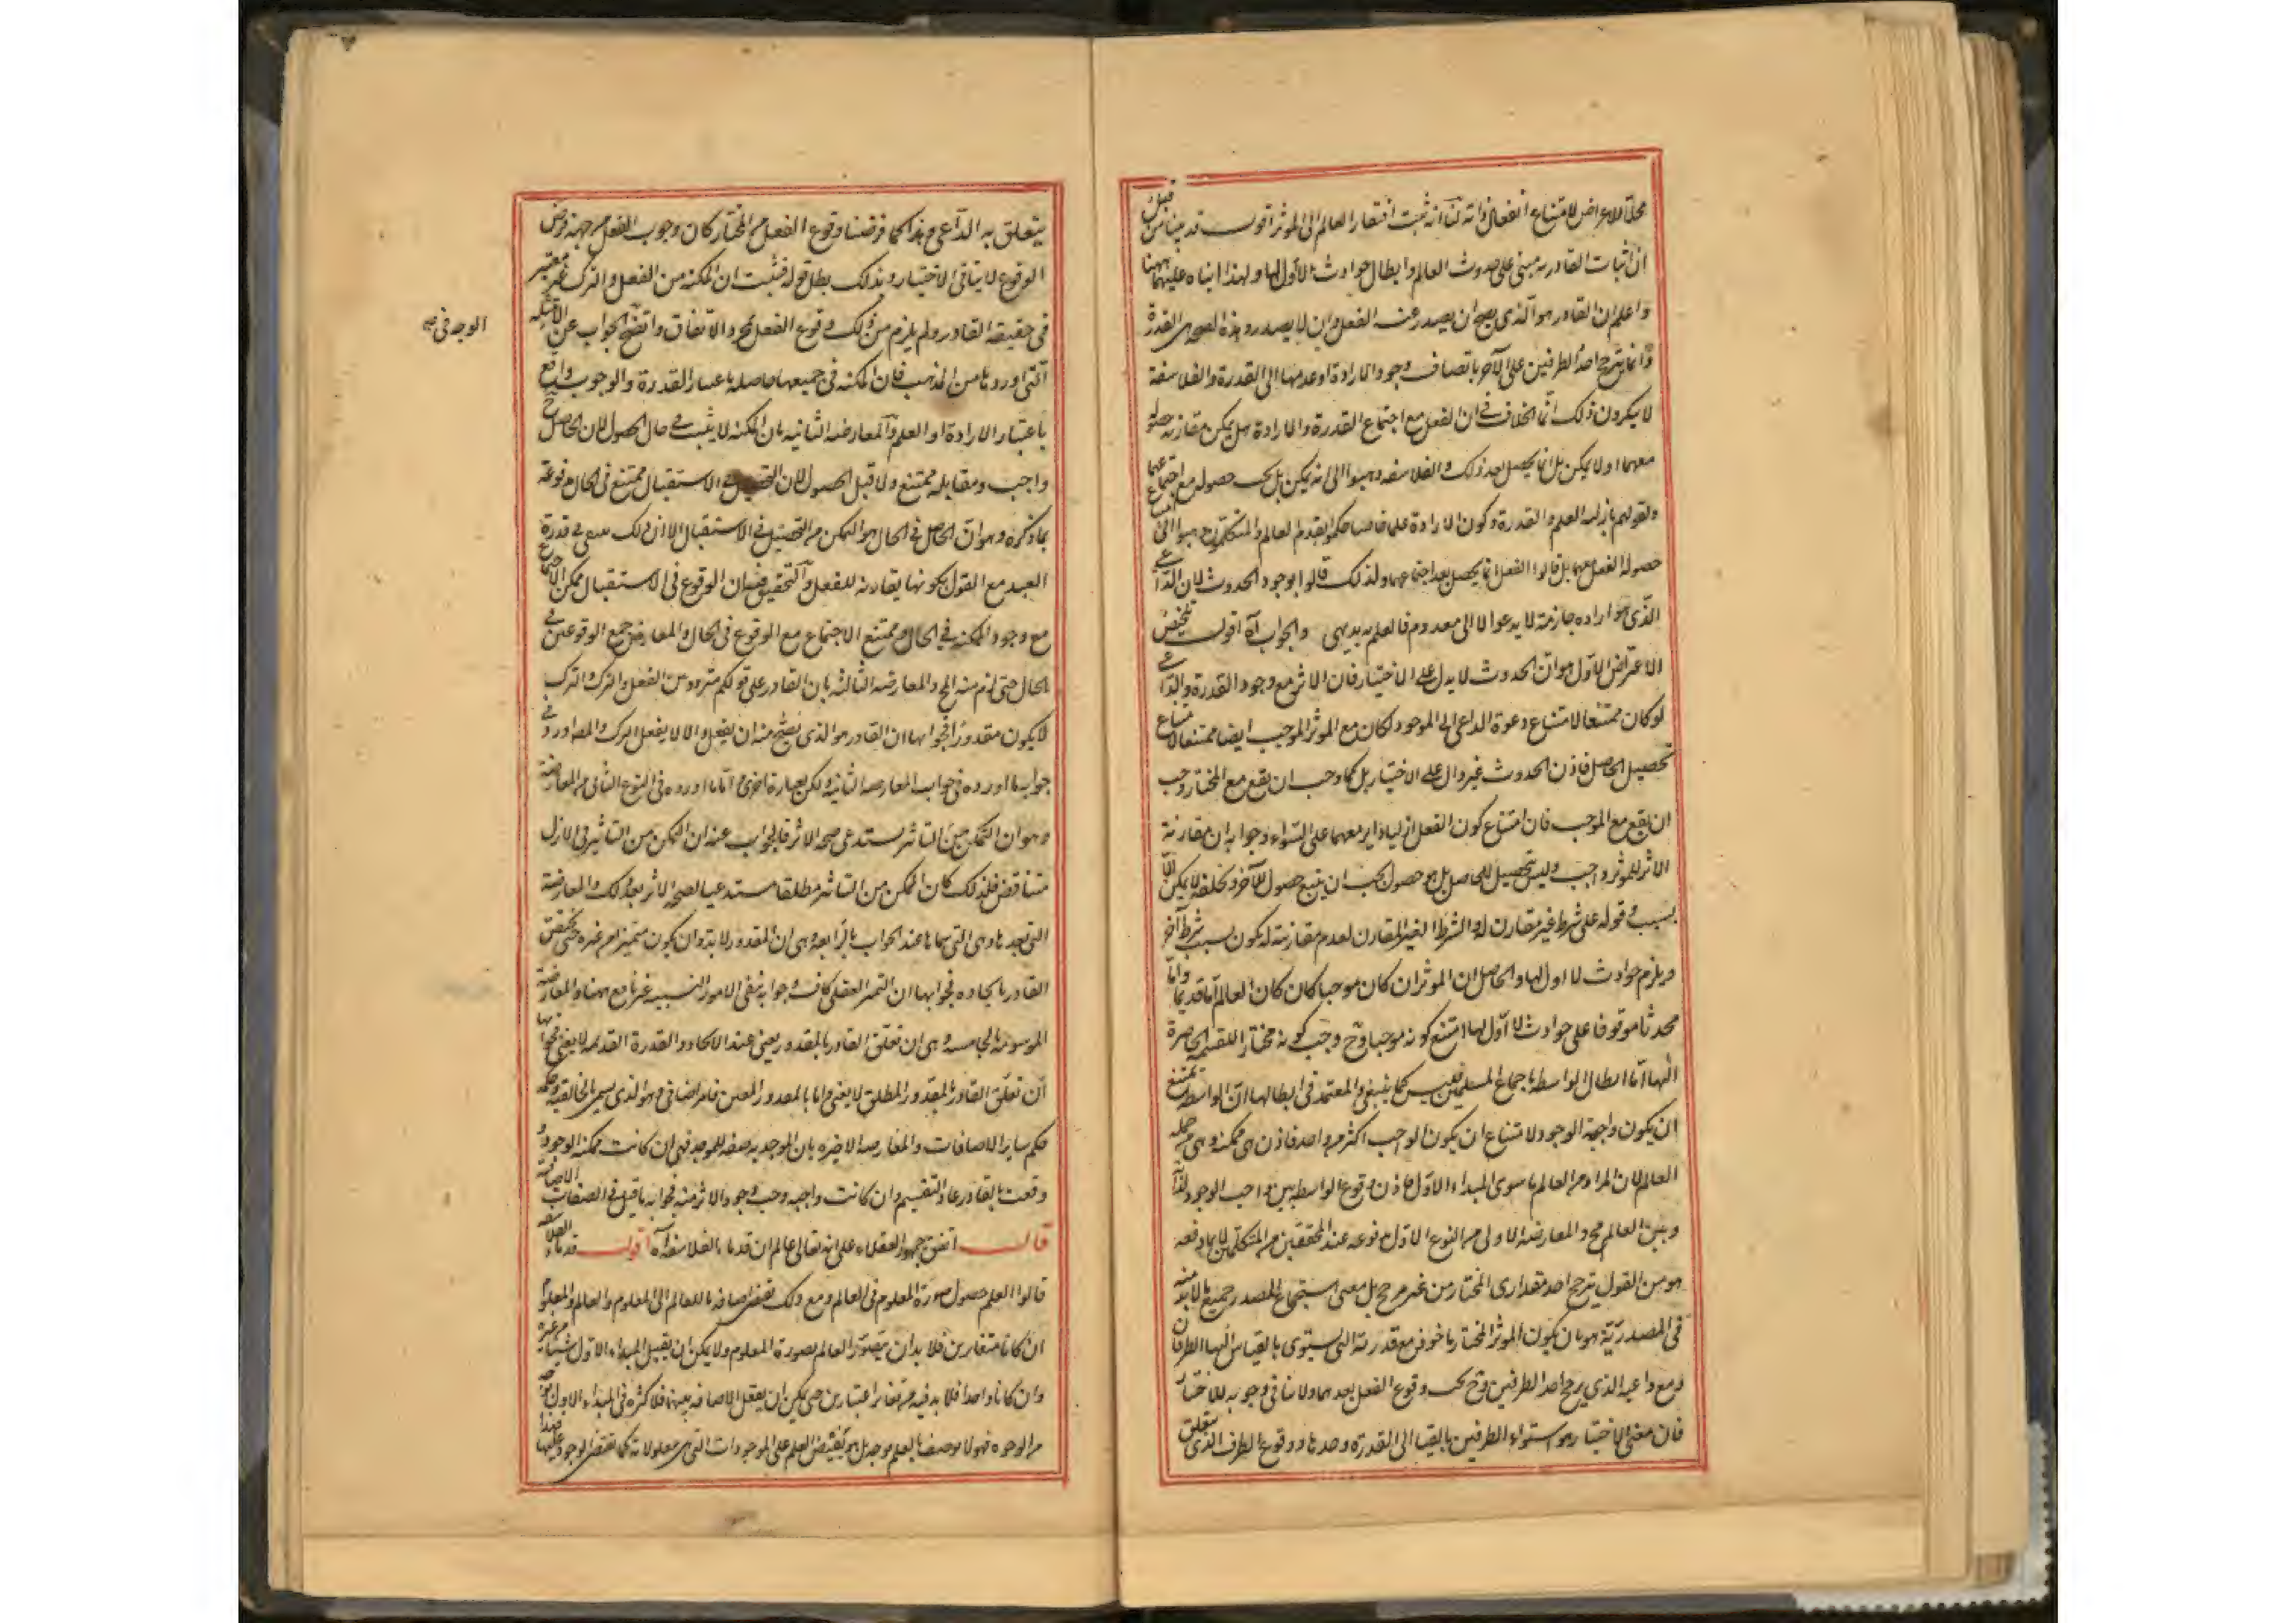 محلّا للاعراض لامتناع انفعال ذاته لنا انه ثبت افتقار العالم الى المؤثر اقول قد بينا من قبل
ان اثبات القادرية مبنى على حدوث العالم وابطال حوادث لا اول لها ولهذا ابناه عليهما ههنا
واعلم ان القادر هو الذى يصح ان يصدر عنه الفعل وان لا يصدر وهذه الصحة هى القدرة
وانما يترجح احد الطرفين على الآخر باتصاف وجود الارادة او عدمها الى القدرة والفلاسفة
لا ينكرون ذلك انما الخلاف فى ان الفعل مع اجتماع القدرة والارادة هل يمكن مقارنة حصوله
معهما او لا يمكن بل انما يحصل بعد ذلك والفلاسفة ذهبوا الى انه يمكن بل يجب حصوله مع اجتماعهما
ولقولهم بازلية العلم والقدرة وكون الارادة علما خاصا حكموا بقدم العالم والمتكلمون ذهبوا الى امتناع
حصول الفعل معهما بل قالوا الفعل انما يحصل بعد اجتماعهما ولذلك قالوا بوجود الحدوث لان الداعى
الذى هو ارادة جازمة لا يدعوا الا الى معدوم فالعلم به بديهى والجواب آه اقول تلخيص
الاعتراض الاول هو ان الحدوث لا يدل على الاختيار فان الاثر مع وجود القدرة والداعى
لو كان ممتنعا لامتناع دعوة الداعى الى الموجود لكان مع المؤثر الموجب ايضا ممتنعا لامتناع
تحصيل الحاصل فاذن الحدوث غير دال على الاختيار بل كما وجب ان يقع مع المختار وجب
ان يقع مع الموجب فان امتناع كون الفعل ازليا دائر معهما على السواء وجوابه ان مقارنة
الاثر للمؤثر واجب وليس تحصيل للحاصل بل هو حصول يجب ان يتبع حصول الآخر وتخلفه لا يمكن الا
بسبب وقوله على شرط غير مقارن له والشرط الغير المقارن لعدم مقارنته له يكون بسبب شرط آخر
ويلزم حوادث لا اول لها والحاصل ان المؤثر ان كان موجبا كان كان العالم اما قديما واما
محدثا موقوفا على حوادث لا اول لها امتنع كونه موجبا وح وجب كونه مختارا للقسمة الحاصرة
اليها اما ابطال الواسطة باجماع المسلمين فليس كما ينبغى والمعتمد فى ابطالها ان الواسطة يمتنع
ان يكون واجبة الوجود لامتناع ان يكون الواجب اكثر من واحد فاذن هى ممكنة وهى من جملة
العالم لان المراد من العالم ما سوى المبداء الاول فاذن وقوع الواسطة بين واجب الوجود لذاته
وبين العالم مح والمعارضة الاولى من النوع الاول مدفوعة عند المحققين من المتكلمين لا بما دفعه
هو من القول بترجح احد مقدارى المختار من غير مرجح بل معنى استجماع المصدر جميع ما لا بد منه
فى المصدرية هو بان يكون المؤثر المختار ماخوذا مع قدرته التى يستوى بالقياس اليها الطرفان
ومع داعيه الذى يرجح احد الطرفين وح يجب وقوع الفعل بعدهما ولا ينافى وجوبه للاختيار
فان معنى الاختيار هو استواء الطرفين بالقياس الى القدرة وحدها ووقوع الطرف الذى يتعلق
يتعلق به الداعى وهذا كما فرضنا وقوع الفعل من المختار كان وجوب الفعل من جهة فرض
الوقوع لا ينافى الاختيار وبذلك بطل قوله فثبت ان المكنة من الفعل والترك غير معتبر
فى حقيقة القادر ولم يلزم من ذلك وقوع الفعل بمجرد الاتفاق واتضح الجواب عن الاسئلة
الوجه فى
التى اوردها من المذهب فان المكنة فى جميعها حاصلة باعتبار القدرة والوجوب واقع
باعتبار الارادة او العلم والمعارضة الثانية بان المكنة لا يثبت فى حال الحصول لان الحاصل ح
واجب ومقابله ممتنع ولا قبل الحصول لان التحصيل فى الاستقبال ممتنع فى الحال مدفوعة
بما ذكره وهو ان الحاصل فى الحال هو التمكن من التحصيل فى الاستقبال الا ان ذلك مبنى على قدرة
العبد مع القول بكونها مقارنة للفعل والتحقيق فيه ان الوقوع فى الاستقبال ممكن الاجتماع
مع وجود المكنة فى الحال وممتنع الاجتماع مع الوقوع فى الحال والمعارض جمع الوقوعين فى
الحال حتى لزم منه المح والمعارضة الثالثة بان القادر على قولكم متردد بين الفعل والترك والترك
لا يكون مقدورا فجوابها ان القادر هو الذى يصح منه ان يفعل وان لا يفعل الترك والمص اورد فى
جواب ما اورده فى جواب المعارضة الثانية ولكن بعبارة اخرى واما ما اورده فى النوع الثانى من المعارضة
وهو ان التمكن من التاثير يستدعى صحة الاثر فالجواب عنه ان التمكن من التاثير فى الازل
متناقض فلذلك كان التمكن من التاثير مطلقا مستدعيا لصحة الاثر بعد ذلك والمعارضة
التى بعدها وهى التى سماها عند الجواب بالرابعة وهى ان المقدور لا بد وان يكون متميزا عن غيره حتى يختص
القادر بايجاده فجوابها ان التميز العقلى كاف وجوابه بنفى الامور النسبية غير نافع ههنا والمعارضة
الموسومة بالخامسة وهى ان تعلق القادر بالمقدور يعنى عند الايجاد والقدرة القديمة لا يفنى فجوابها
ان تعلق القادر بالمقدور المطلق لا يفنى واما بالمقدور المعين فامر اضافى وهو الذى يسمى بالخالقية وحكمه
حكم سائر الاضافات والمعارضة الاخيرة بان الموجدية صفة للموجد فهى ان كانت ممكنة الوجود و
وقعت بالقادر عاد التقسيم وان كانت واجبة وجب وجود الاثر منه فجوابه ما قيل فى الصفات الاضافية
قال اتفق جمهور العقلاء على انه تعالى عالم ان قدماء الفلاسفة آه اقول قدماء الفلاسفة
قالوا العلم حصول صورة المعلوم فى العالم ومع ذلك يقتضى اضافة ما للعالم الى المعلوم والعالم والمعلوم
ان كانا متغايرين فلا بد ان يتصور العالم بصورة المعلوم ولا يمكن ان يقبل المبداء الاول شيئا من غيره
وان كانا واحدا فلا بد فيه من تغاير اعتبارين حتى يمكن ان يعقل الاضافة بينهما فلا كثرة فى المبداء الاول بوجه
من الوجوه فهو لا يوصف بالعلم بوجه بل هو يفيض العلم على الموجودات التى هى معلولاته كما يفيض الوجود عليها